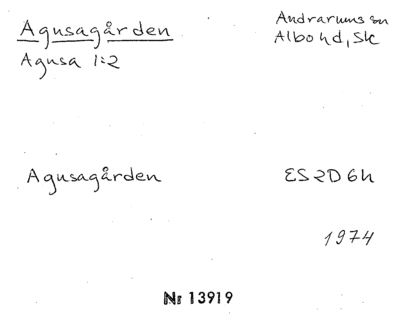 Agusagården
Agusa 1:2
Andrarums sn
Albo hd, Sk
Agusagården
ES 2D 6h
1974
Nr 13919